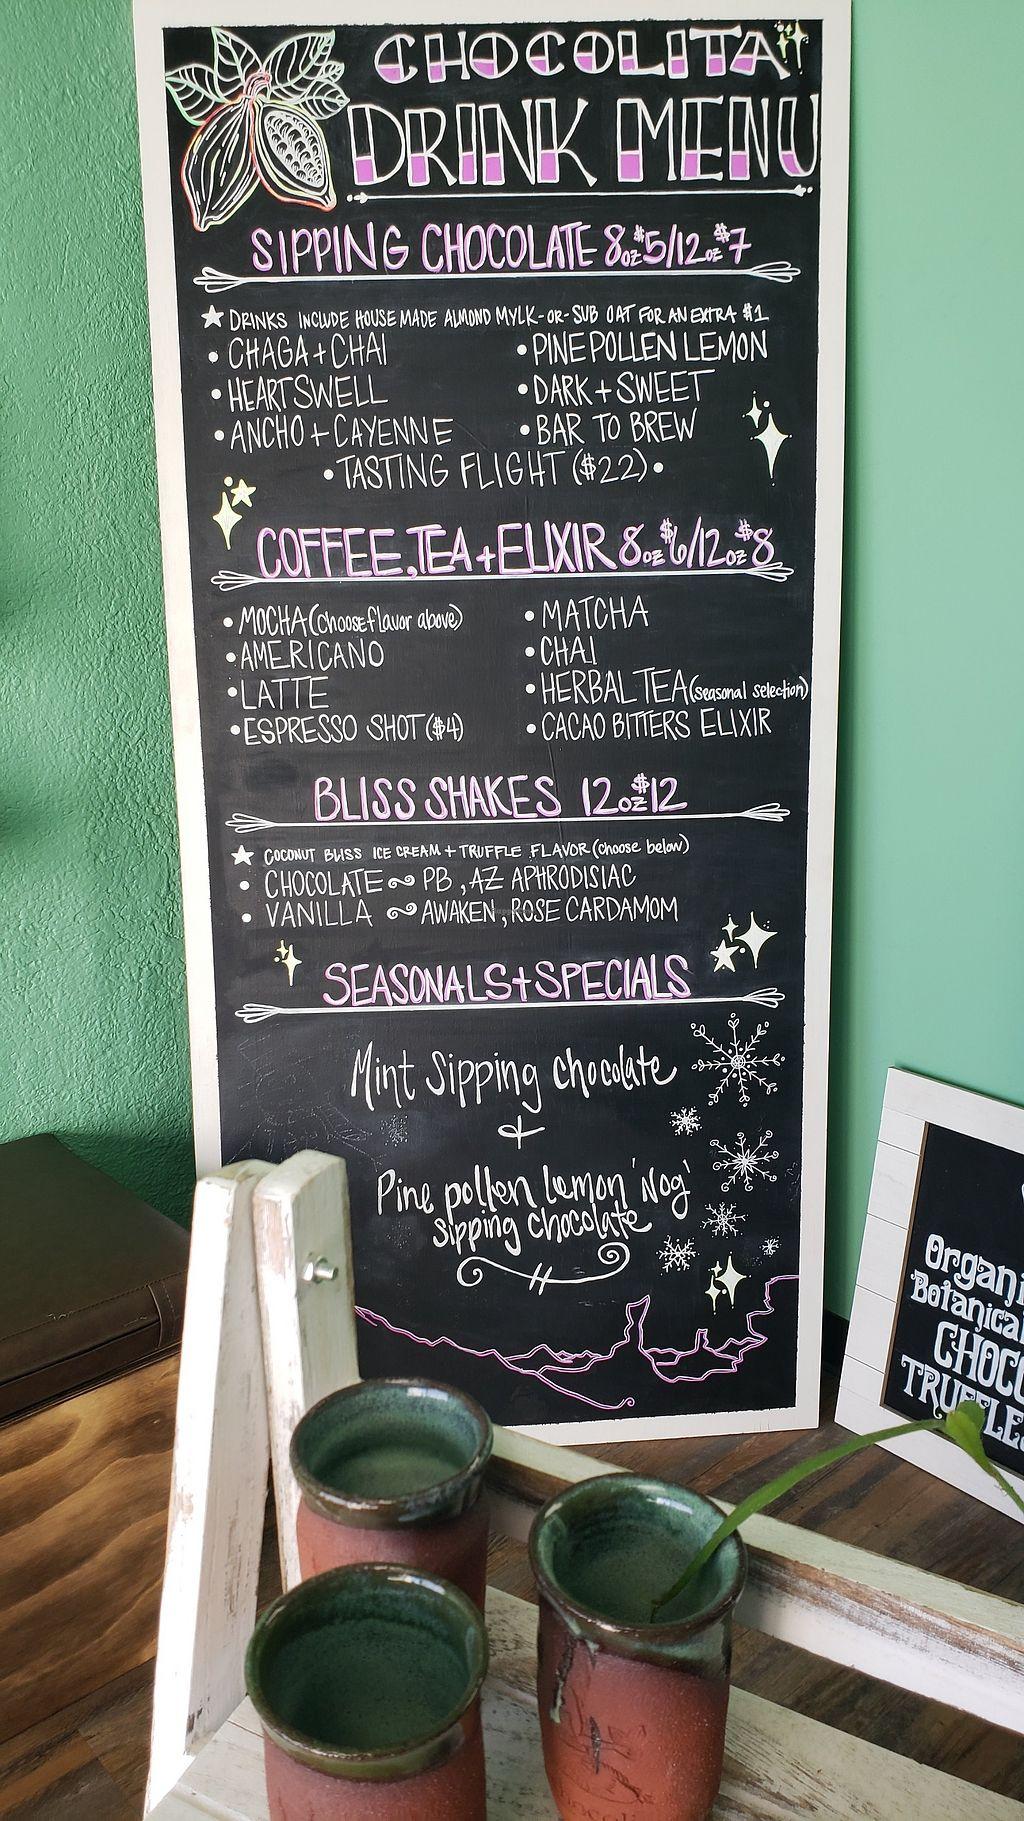 CHOCOLITA
DRINK MENU
SIPPING CHOCOLATE 8oz $5/12oz $7
★ DRINKS INCLUDE HOUSE MADE ALMOND MYLK-OR-SUB OAT FOR AN EXTRA $1
• CHAGA + CHAI
• HEARTSWELL
• ANCHO + CAYENNE
• PINE POLLEN LEMON
• DARK + SWEET
• BAR TO BREW
• TASTING FLIGHT ($22) •
COFFEE, TEA + ELIXIR 8oz $6/12oz $8
• MOCHA (choose flavor above)
• AMERICANO
• LATTE
• ESPRESSO SHOT ($4)
• MATCHA
• CHAI
• HERBAL TEA (seasonal selection)
• CACAO BITTERS ELIXIR
BLISS SHAKES 12oz $12
★ COCONUT BLISS ICE CREAM + TRUFFLE FLAVOR (choose below)
• CHOCOLATE ~ PB, AZ APHRODISIAC
• VANILLA ~ AWAKEN, ROSE CARDAMOM
SEASONALS + SPECIALS
Mint Sipping chocolate
+
Pine pollen lemon 'Nog'
sipping chocolate
Organi
Botanica
CHOC
TRUFFLE